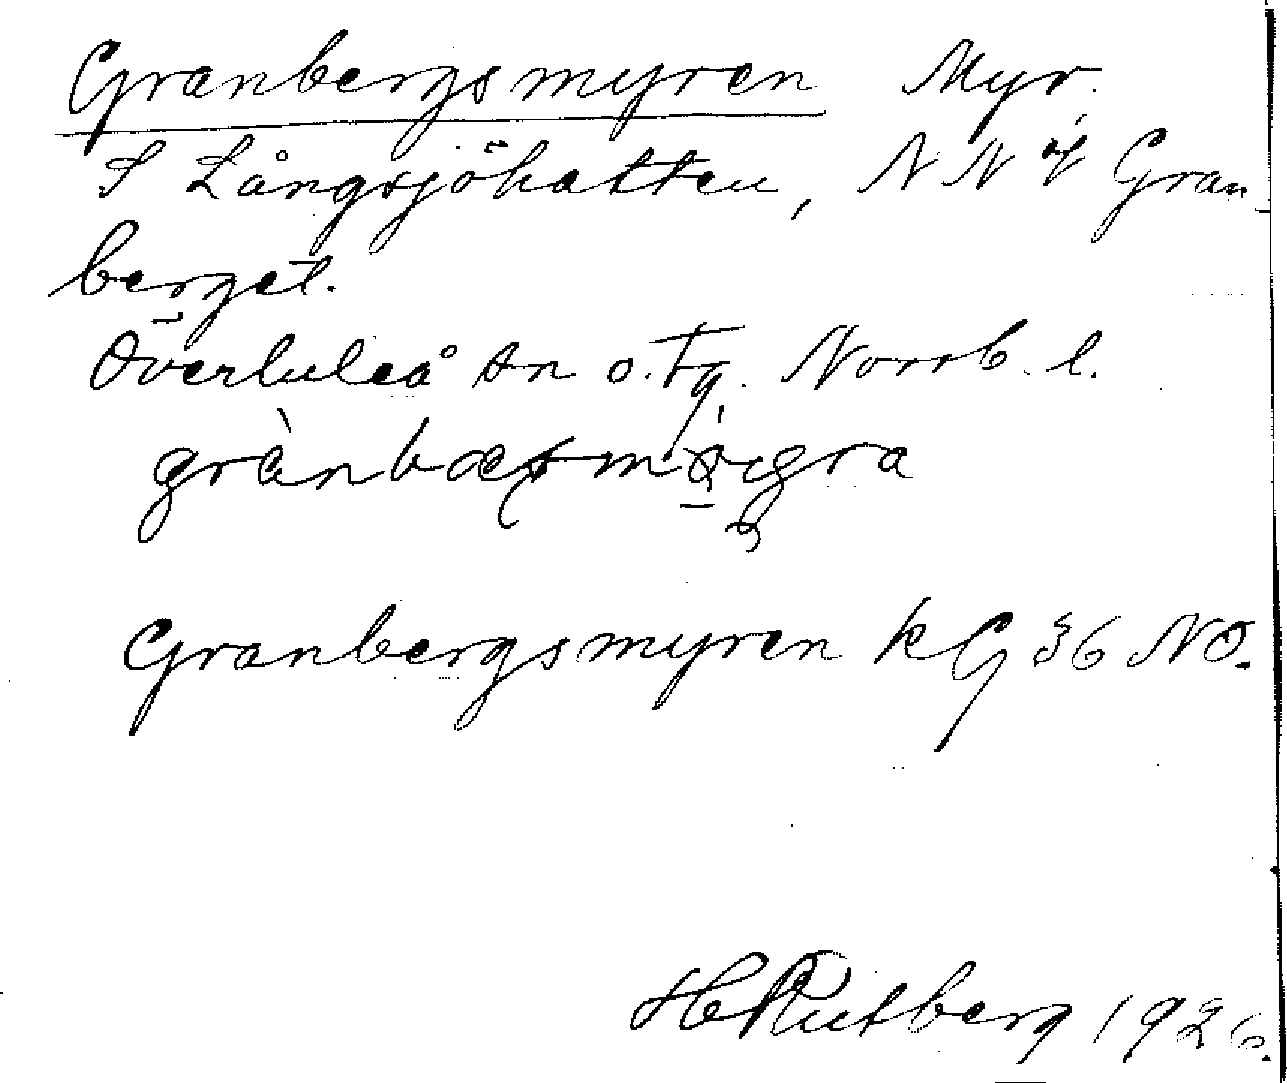 Granbergsmyren Myr.
S Långsjöhatten, NNV Gran-
berget.
Överluleå sn o. tg. Norrb. l.
Granbergsmyren kG 36 NO.
H Rutberg 1926.